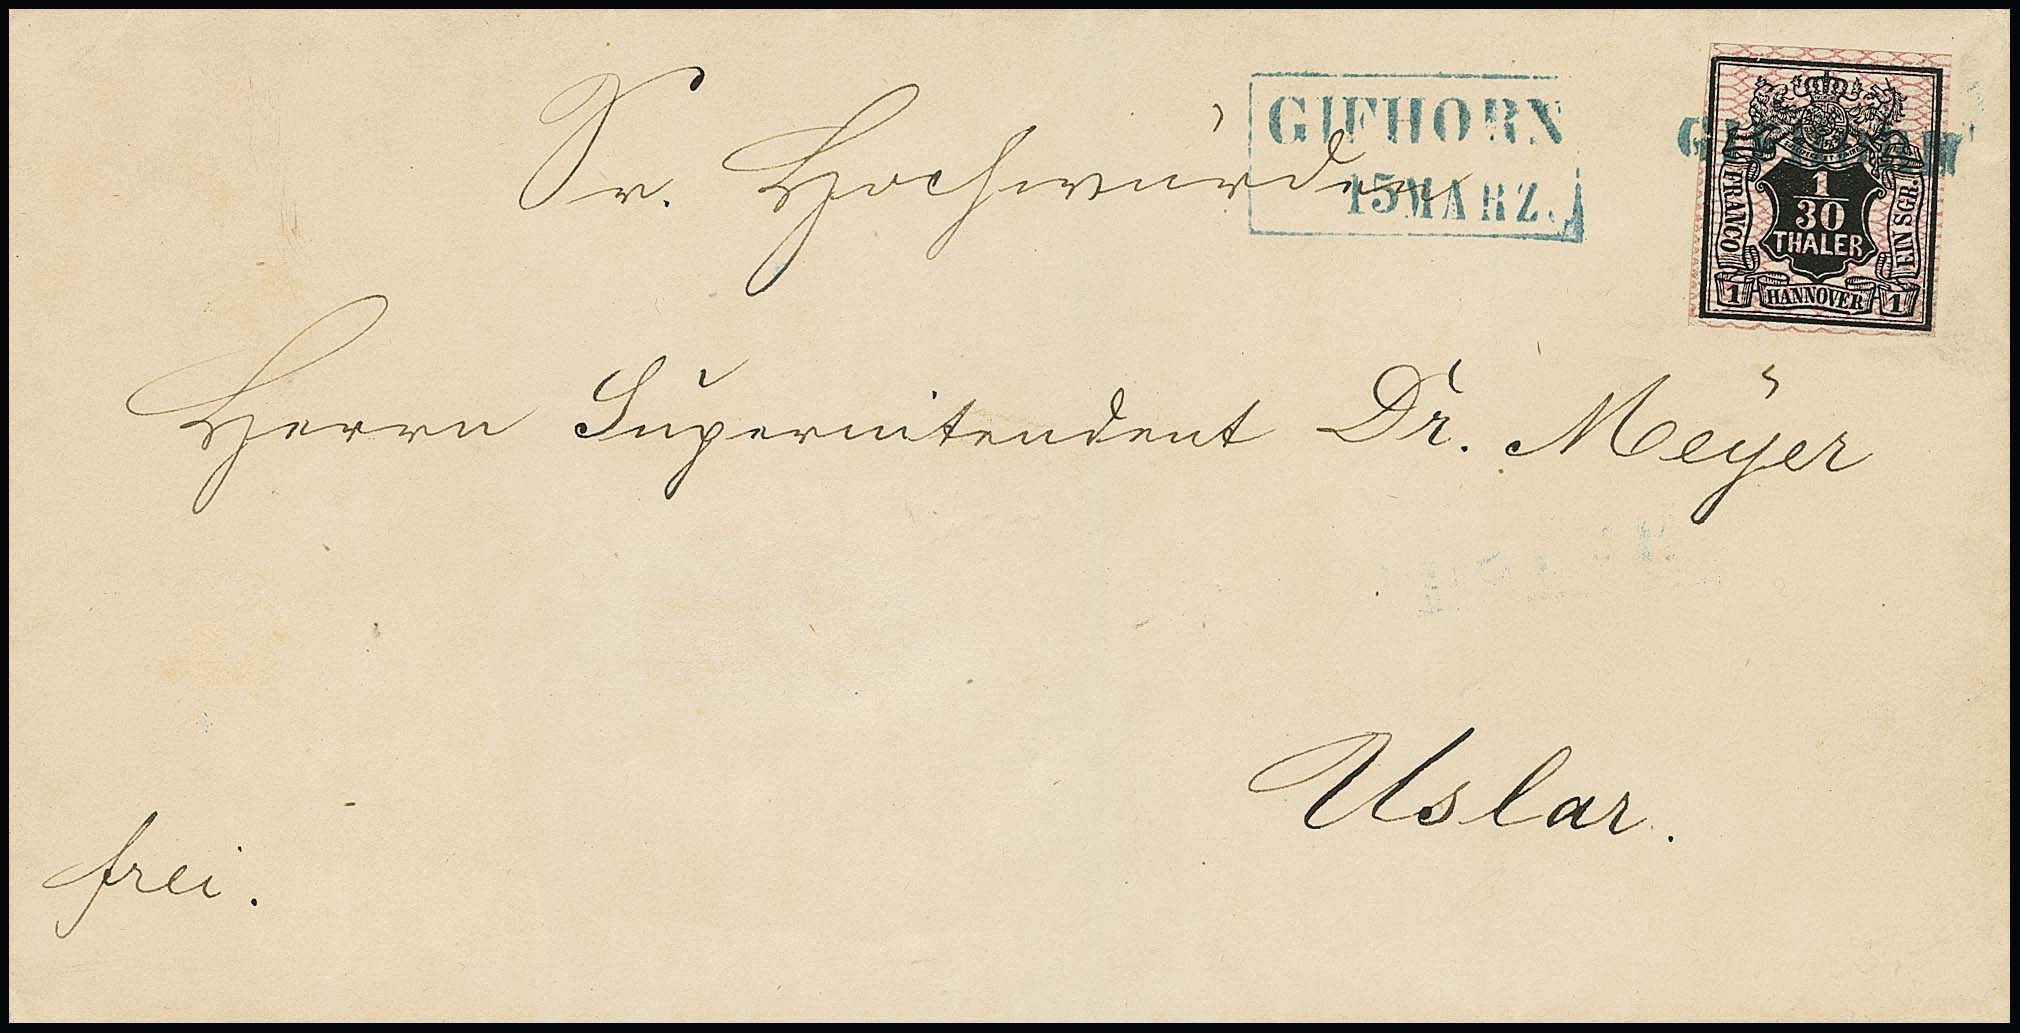 Sr. Hochwürden
GIFHORN
15 MÄRZ.
FRANCO
EIN SGR.
1/30
THALER
1 HANNOVER 1
Herrn Superintendent Dr. Meÿer
Uslar.
frei.